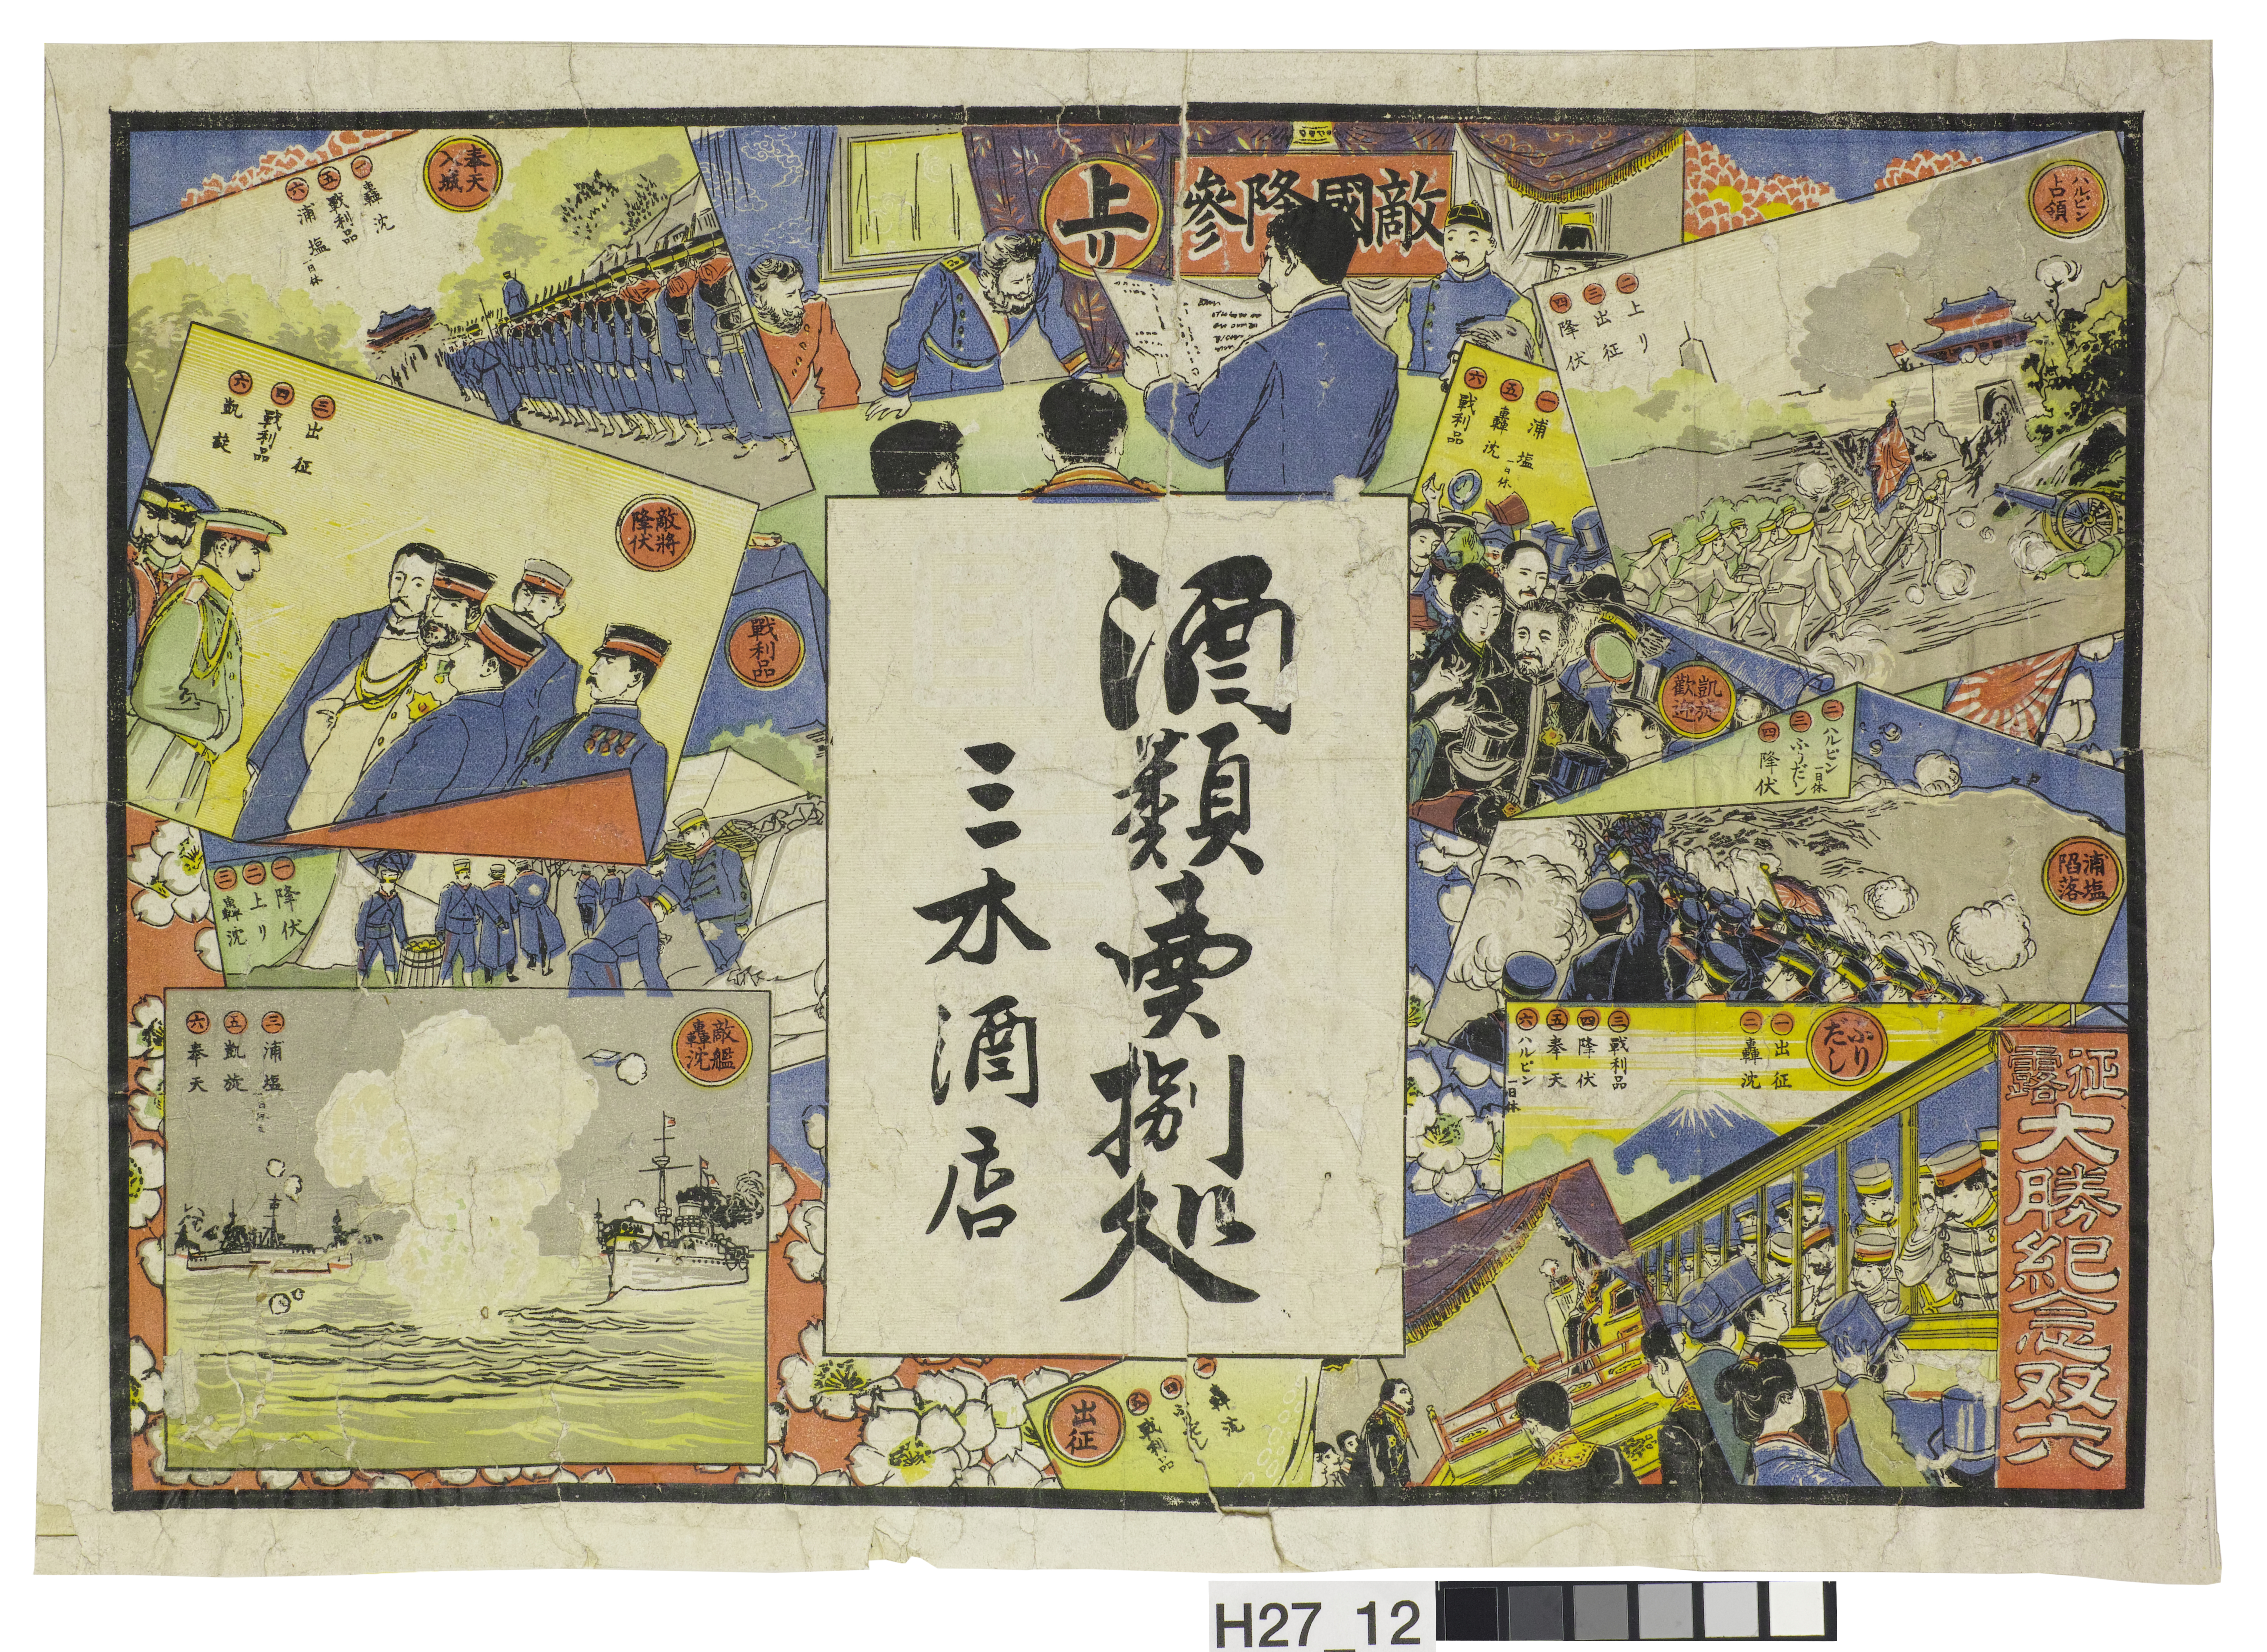 征露
大勝紀念双六
敵國降參
上リ
酒類賣捌処
三木酒店
ハルビン
占領
二 上リ
三 出征
四 降伏
凱旋
歡迎
一 浦塩 一日休
五 轟沈
六 戰利品
浦塩
陷落
二 ハルビン 一日休
三 ふりだし
四 降伏
ふり
だし
一 出征
二 轟沈
三 戰利品
四 降伏
五 奉天
六 ハルビン 一日休
出征
一 轟沈
四 ふりだし
五 戰利品
奉天
入城
一 轟沈
五 戰利品
六 浦塩 一日休
敵將
降伏
三 出征
四 戰利品
六 凱旋
戰利品
一 降伏
二 上リ
三 轟沈
敵艦
轟沈
三 浦塩
五 凱旋
六 奉天
H27_12